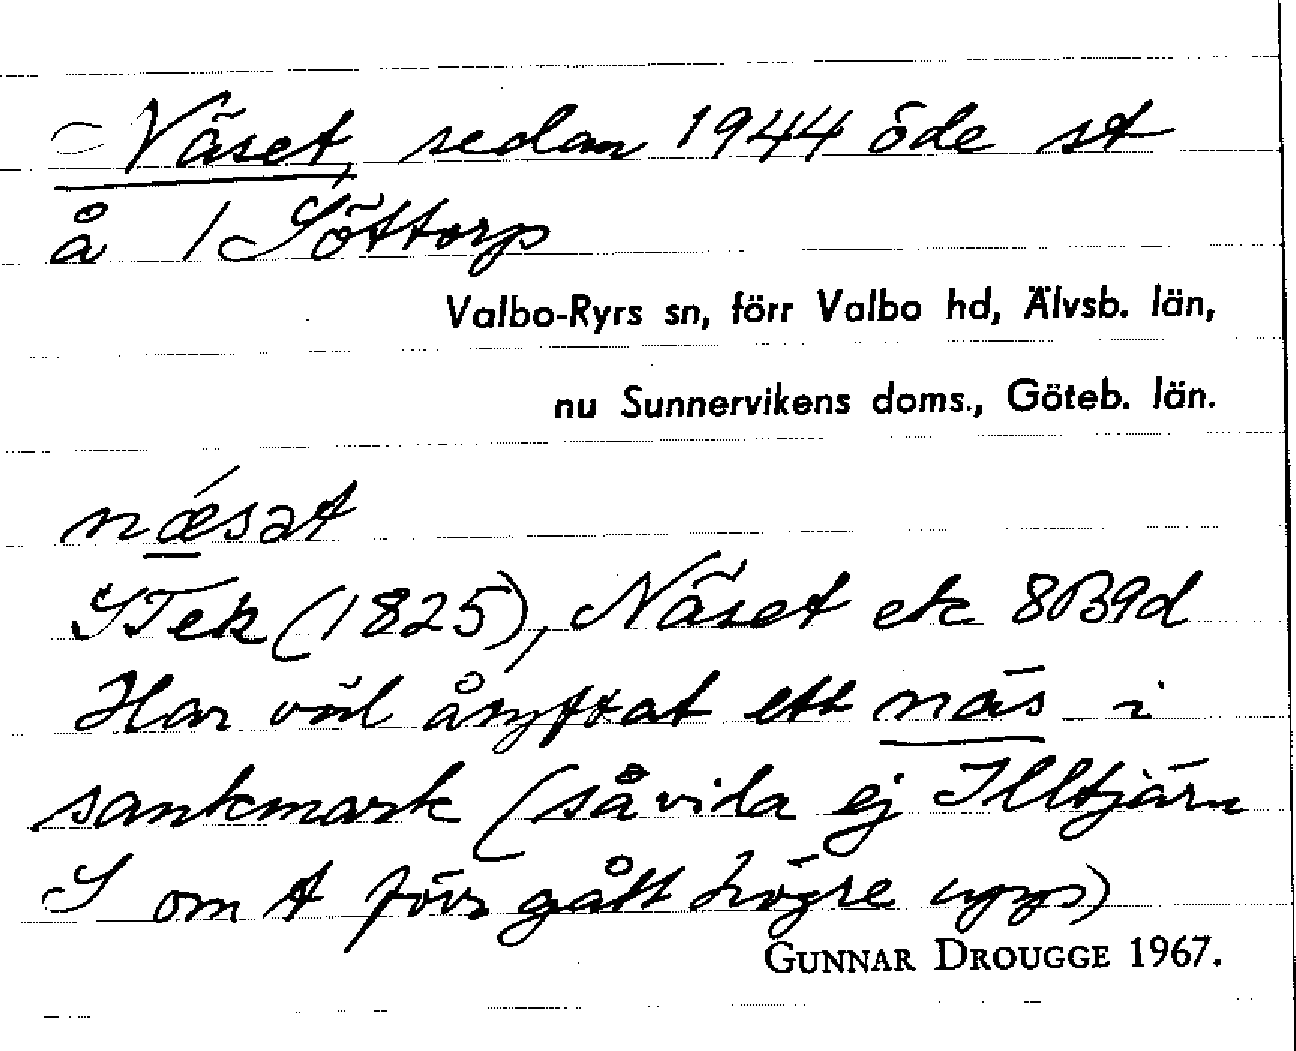 = Näset, sedan 1944 öde st
å 1 Söttorp
Valbo-Ryrs sn, förr Valbo hd, Älvsb. län,
nu Sunnervikens doms., Göteb. län.
næ´sət
STek (1825), Näset ek 8B9d
Har väl åsyftat ett näs i
sankmark (såvida ej Illtjärn
S om t förr gått högre upp)
GUNNAR DROUGGE 1967.